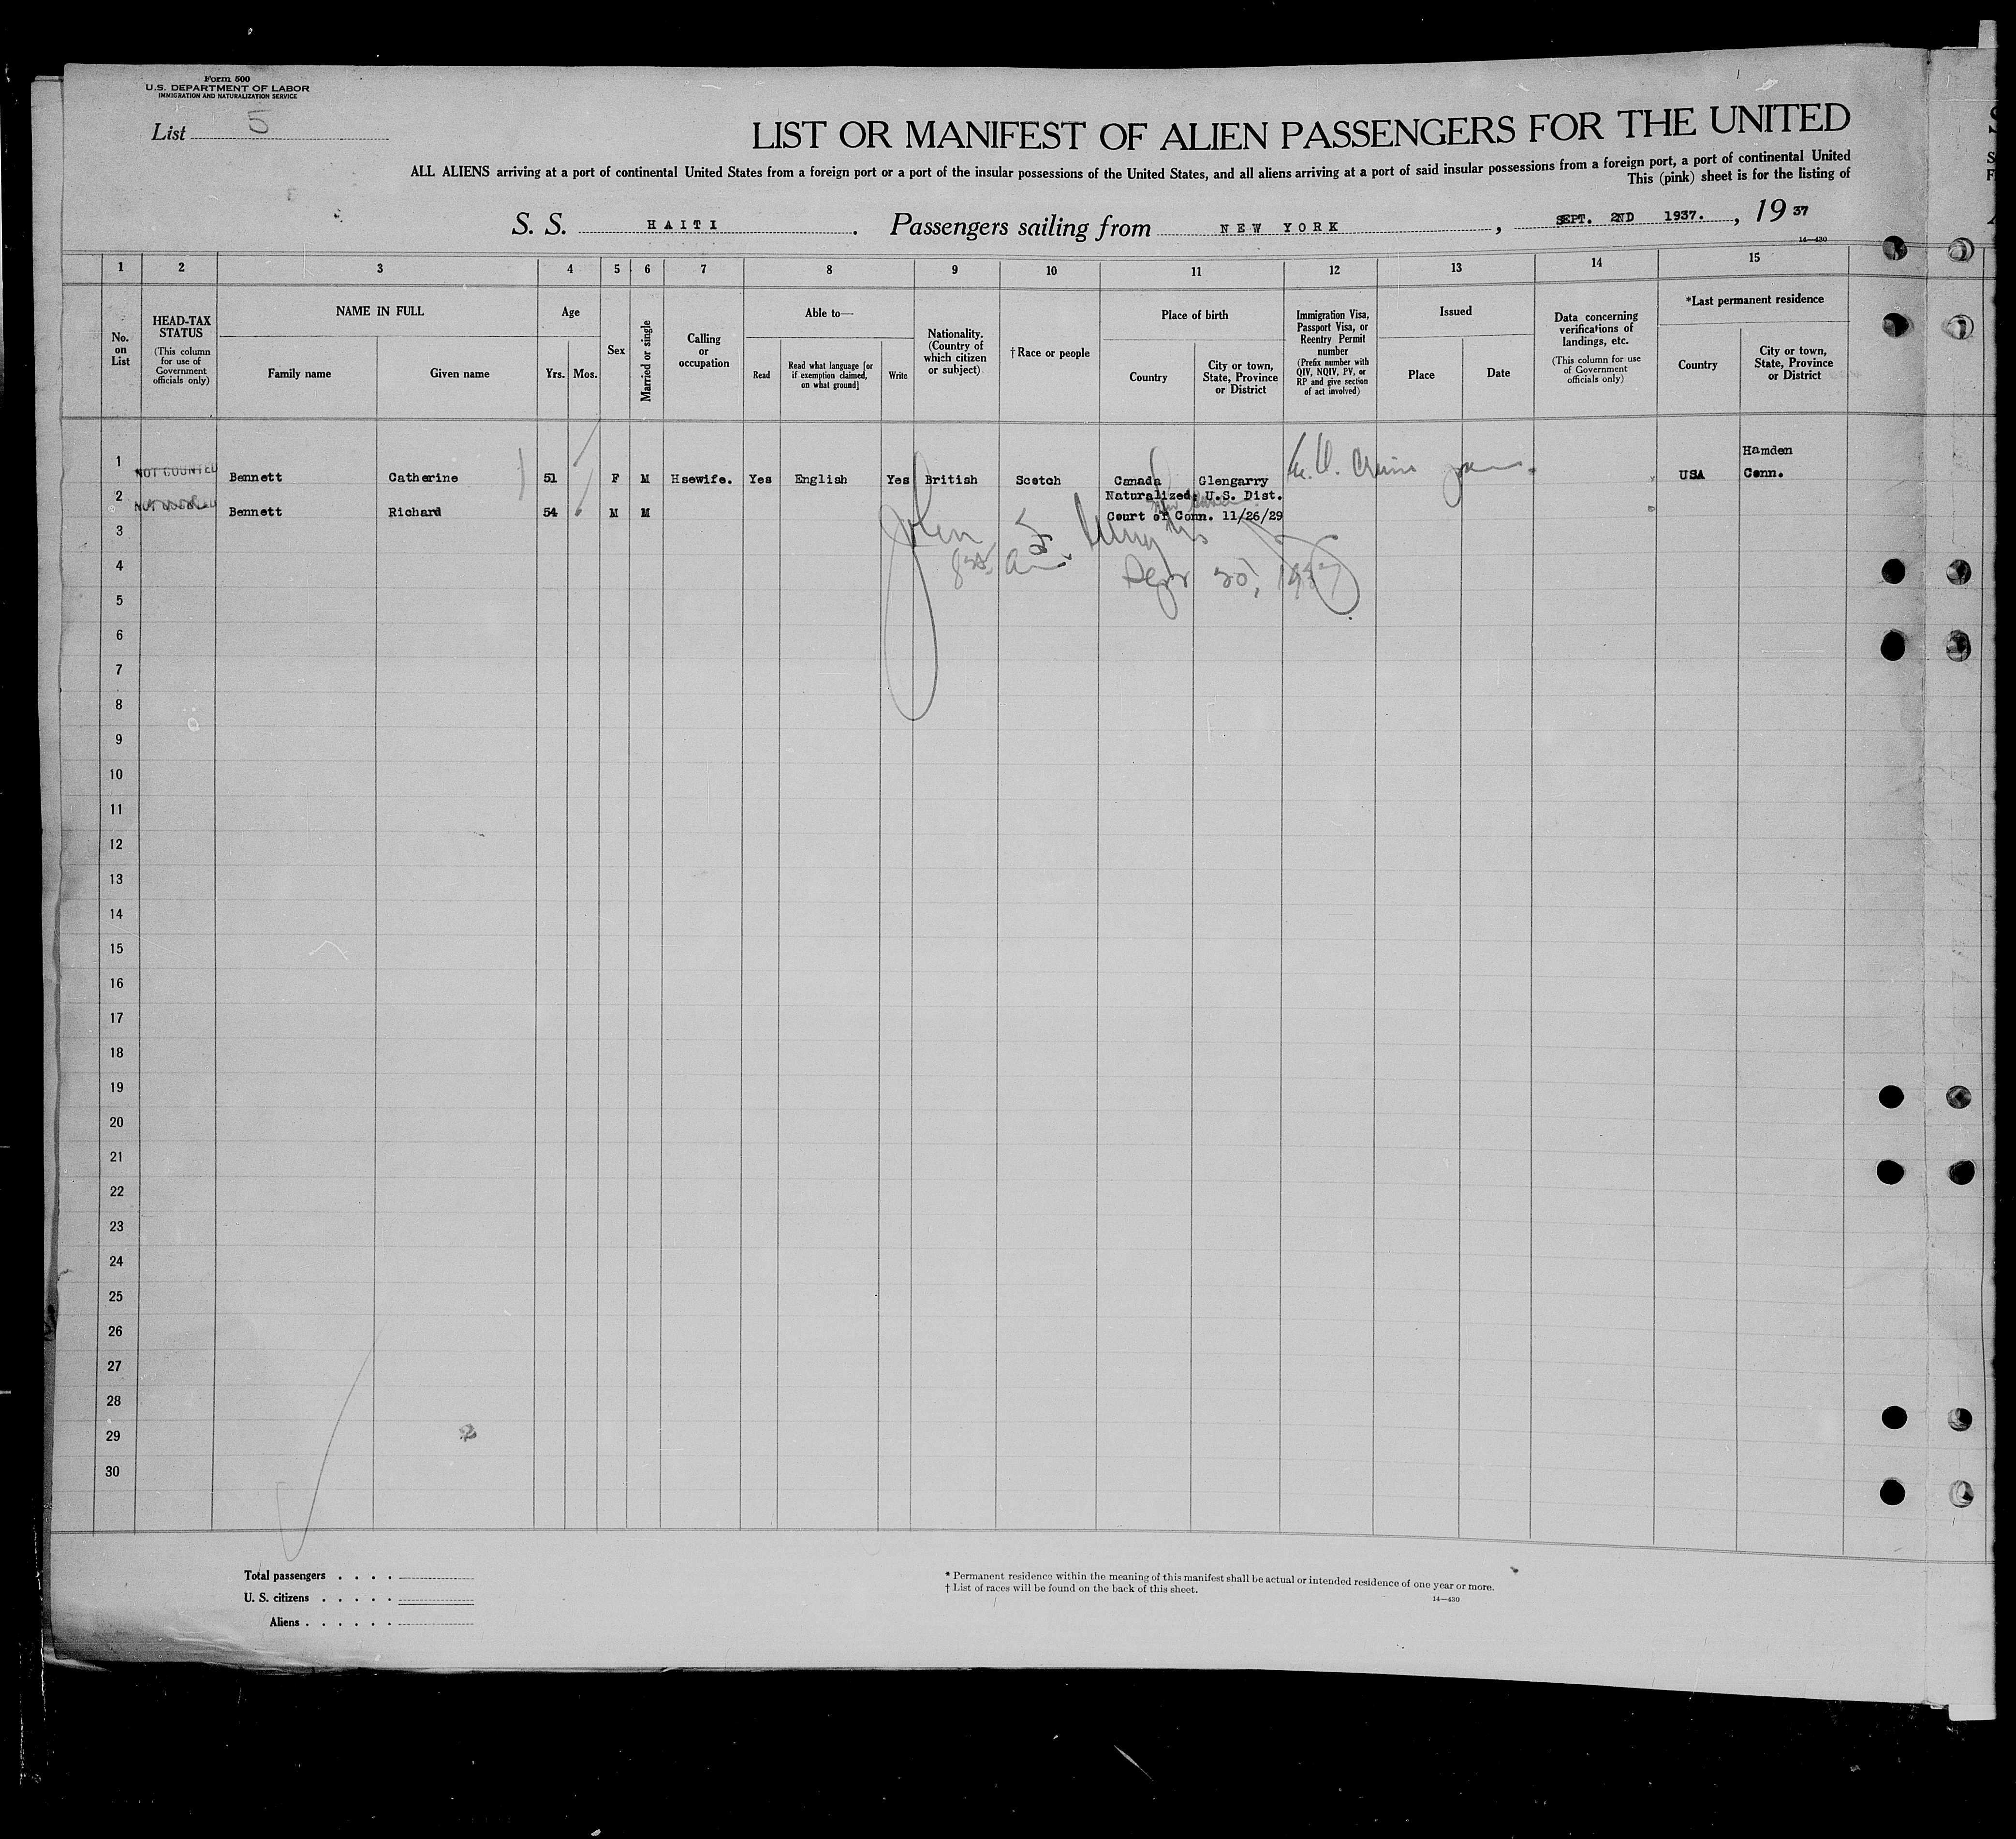 Form 500
U.S. DEPARTMENT OF LABOR
IMMIGRATION AND NATURALIZATION SERVICE
List 5
LIST OR MANIFEST OF ALIEN PASSENGERS FOR THE UNITED
ALL ALIENS arriving at a port of continental United States from a foreign port or a port of the insular possessions of the United States, and all aliens arriving at a port of said insular possessions from a foreign port, a port of continental United
This (pink) sheet is for the listing of
S. S. HAITI. Passengers sailing from NEW YORK, SEPT. 2ND 1937., 19 37
14—430
1 2 3 4 5 6 7 8 9 10 11 12 13 14 15
No. on List
HEAD-TAX STATUS
(This column for use of Government officials only)
NAME IN FULL
Family name
Given name
Age
Yrs. Mos.
Sex
Married or single
Calling or occupation
Able to—
Read
Read what language [or if exemption claimed, on what ground]
Write
Nationality. (Country of which citizen or subject)
†Race or people
Place of birth
Country
City or town, State, Province or District
Immigration Visa, Passport Visa, or Reentry Permit number
(Prefix number with QIV, NQIV, PV, or RP and give section of act involved)
Issued
Place
Date
Data concerning verifications of landings, etc.
(This column for use of Government officials only)
*Last permanent residence
Country
City or town, State, Province or District
1 NOT COUNTED Bennett Catherine 51 F M Hsewife. Yes English Yes British Scotch Canada Glengarry USA Hamden Conn.
2 Bennett Richard 54 M M Naturalized: U.S. Dist.
Court of Conn. 11/26/29
John
1937
3
4
5
6
7
8
9
10
11
12
13
14
15
16
17
18
19
20
21
22
23
24
25
26
27
28
29
2
30
Total passengers . . . .
U. S. citizens . . . . .
Aliens . . . . . .
* Permanent residence within the meaning of this manifest shall be actual or intended residence of one year or more.
† List of races will be found on the back of this sheet.
14—430